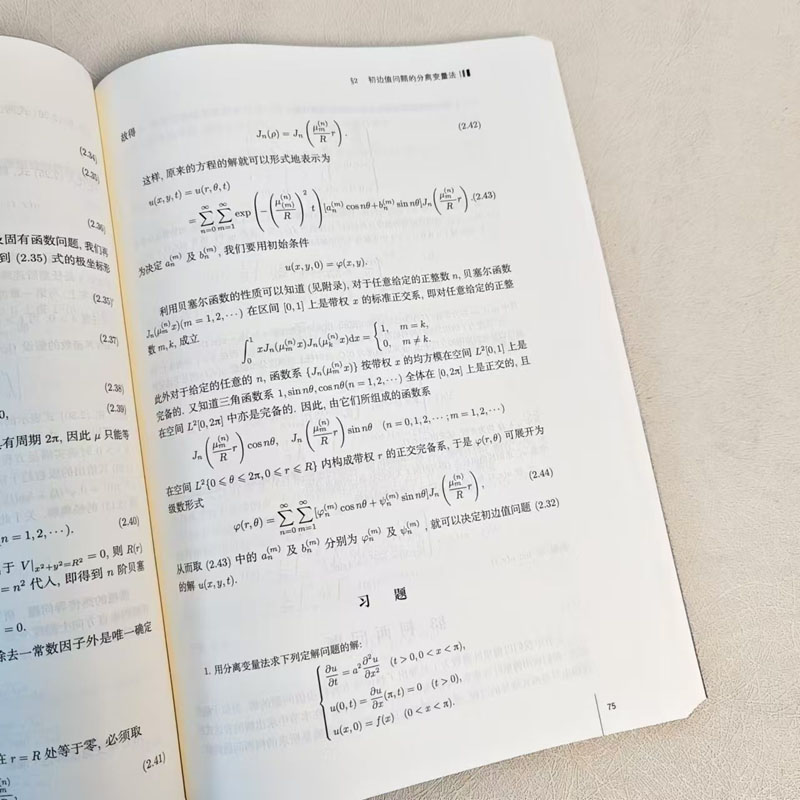 (2.34)
(2.35)
(2.36)
及固有函数问题, 我们再
到 (2.35) 式的极坐标形
(2.35)'
(2.37)
(2.38)
0, (2.39)
具有周期 2π, 因此 μ 只能等
(n = 1, 2, ⋯). (2.40)
于 V|_{x²+y²=R²} = 0, 则 R(r)
= n² 代入, 即得到 n 阶贝塞
= 0.
除去一常数因子外是唯一确定
在 r = R 处等于零, 必须取
(2.41)
§2 初边值问题的分离变量法
故得
J_n(ρ) = J_n(μ_m^{(n)}/R r). (2.42)
这样, 原来的方程的解就可以形式地表示为
u(x, y, t) = u(r, θ, t)
= ∑_{n=0}^{∞} ∑_{m=1}^{∞} exp(−(μ_{(m)}^{(n)}/R)² t)[a_n^{(m)} cos nθ + b_n^{(m)} sin nθ]J_n(μ_m^{(n)}/R r). (2.43)
为决定 a_n^{(m)} 及 b_n^{(m)}, 我们要用初始条件
u(x, y, 0) = φ(x, y).
利用贝塞尔函数的性质可以知道 (见附录), 对于任意给定的正整数 n, 贝塞尔函数
J_n(μ_m^{(n)} x)(m = 1, 2, ⋯) 在区间 [0, 1] 上是带权 x 的标准正交系, 即对任意给定的正整
数 m, k, 成立
∫_0^1 xJ_n(μ_m^{(n)} x)J_n(μ_k^{(n)} x)dx = { 1, m = k,
0, m ≠ k.
此外对于给定的任意的 n, 函数系 {J_n(μ_m^{(n)} x)} 按带权 x 的均方模在空间 L²[0, 1] 上是
完备的. 又知道三角函数系 1, sin nθ, cos nθ(n = 1, 2, ⋯) 全体在 [0, 2π] 上是正交的, 且
在空间 L²[0, 2π] 中亦是完备的. 因此, 由它们所组成的函数系
J_n(μ_m^{(n)}/R r) cos nθ, J_n(μ_m^{(n)}/R r) sin nθ (n = 0, 1, 2, ⋯; m = 1, 2, ⋯)
在空间 L²{0 ⩽ θ ⩽ 2π, 0 ⩽ r ⩽ R} 内构成带权 r 的正交完备系, 于是 φ(r, θ) 可展开为
级数形式
φ(r, θ) = ∑_{n=0}^{∞} ∑_{m=1}^{∞} [φ_n^{(m)} cos nθ + ψ_n^{(m)} sin nθ]J_n(μ_m^{(n)}/R r), (2.44)
从而取 (2.43) 中的 a_n^{(m)} 及 b_n^{(m)} 分别为 φ_n^{(m)} 及 ψ_n^{(m)}, 就可以决定初边值问题 (2.32)
的解 u(x, y, t).
习 题
1. 用分离变量法求下列定解问题的解:
{ ∂u/∂t = a² ∂²u/∂x² (t > 0, 0 < x < π),
u(0, t) = ∂u/∂x (π, t) = 0 (t > 0),
u(x, 0) = f(x) (0 < x < π).
75